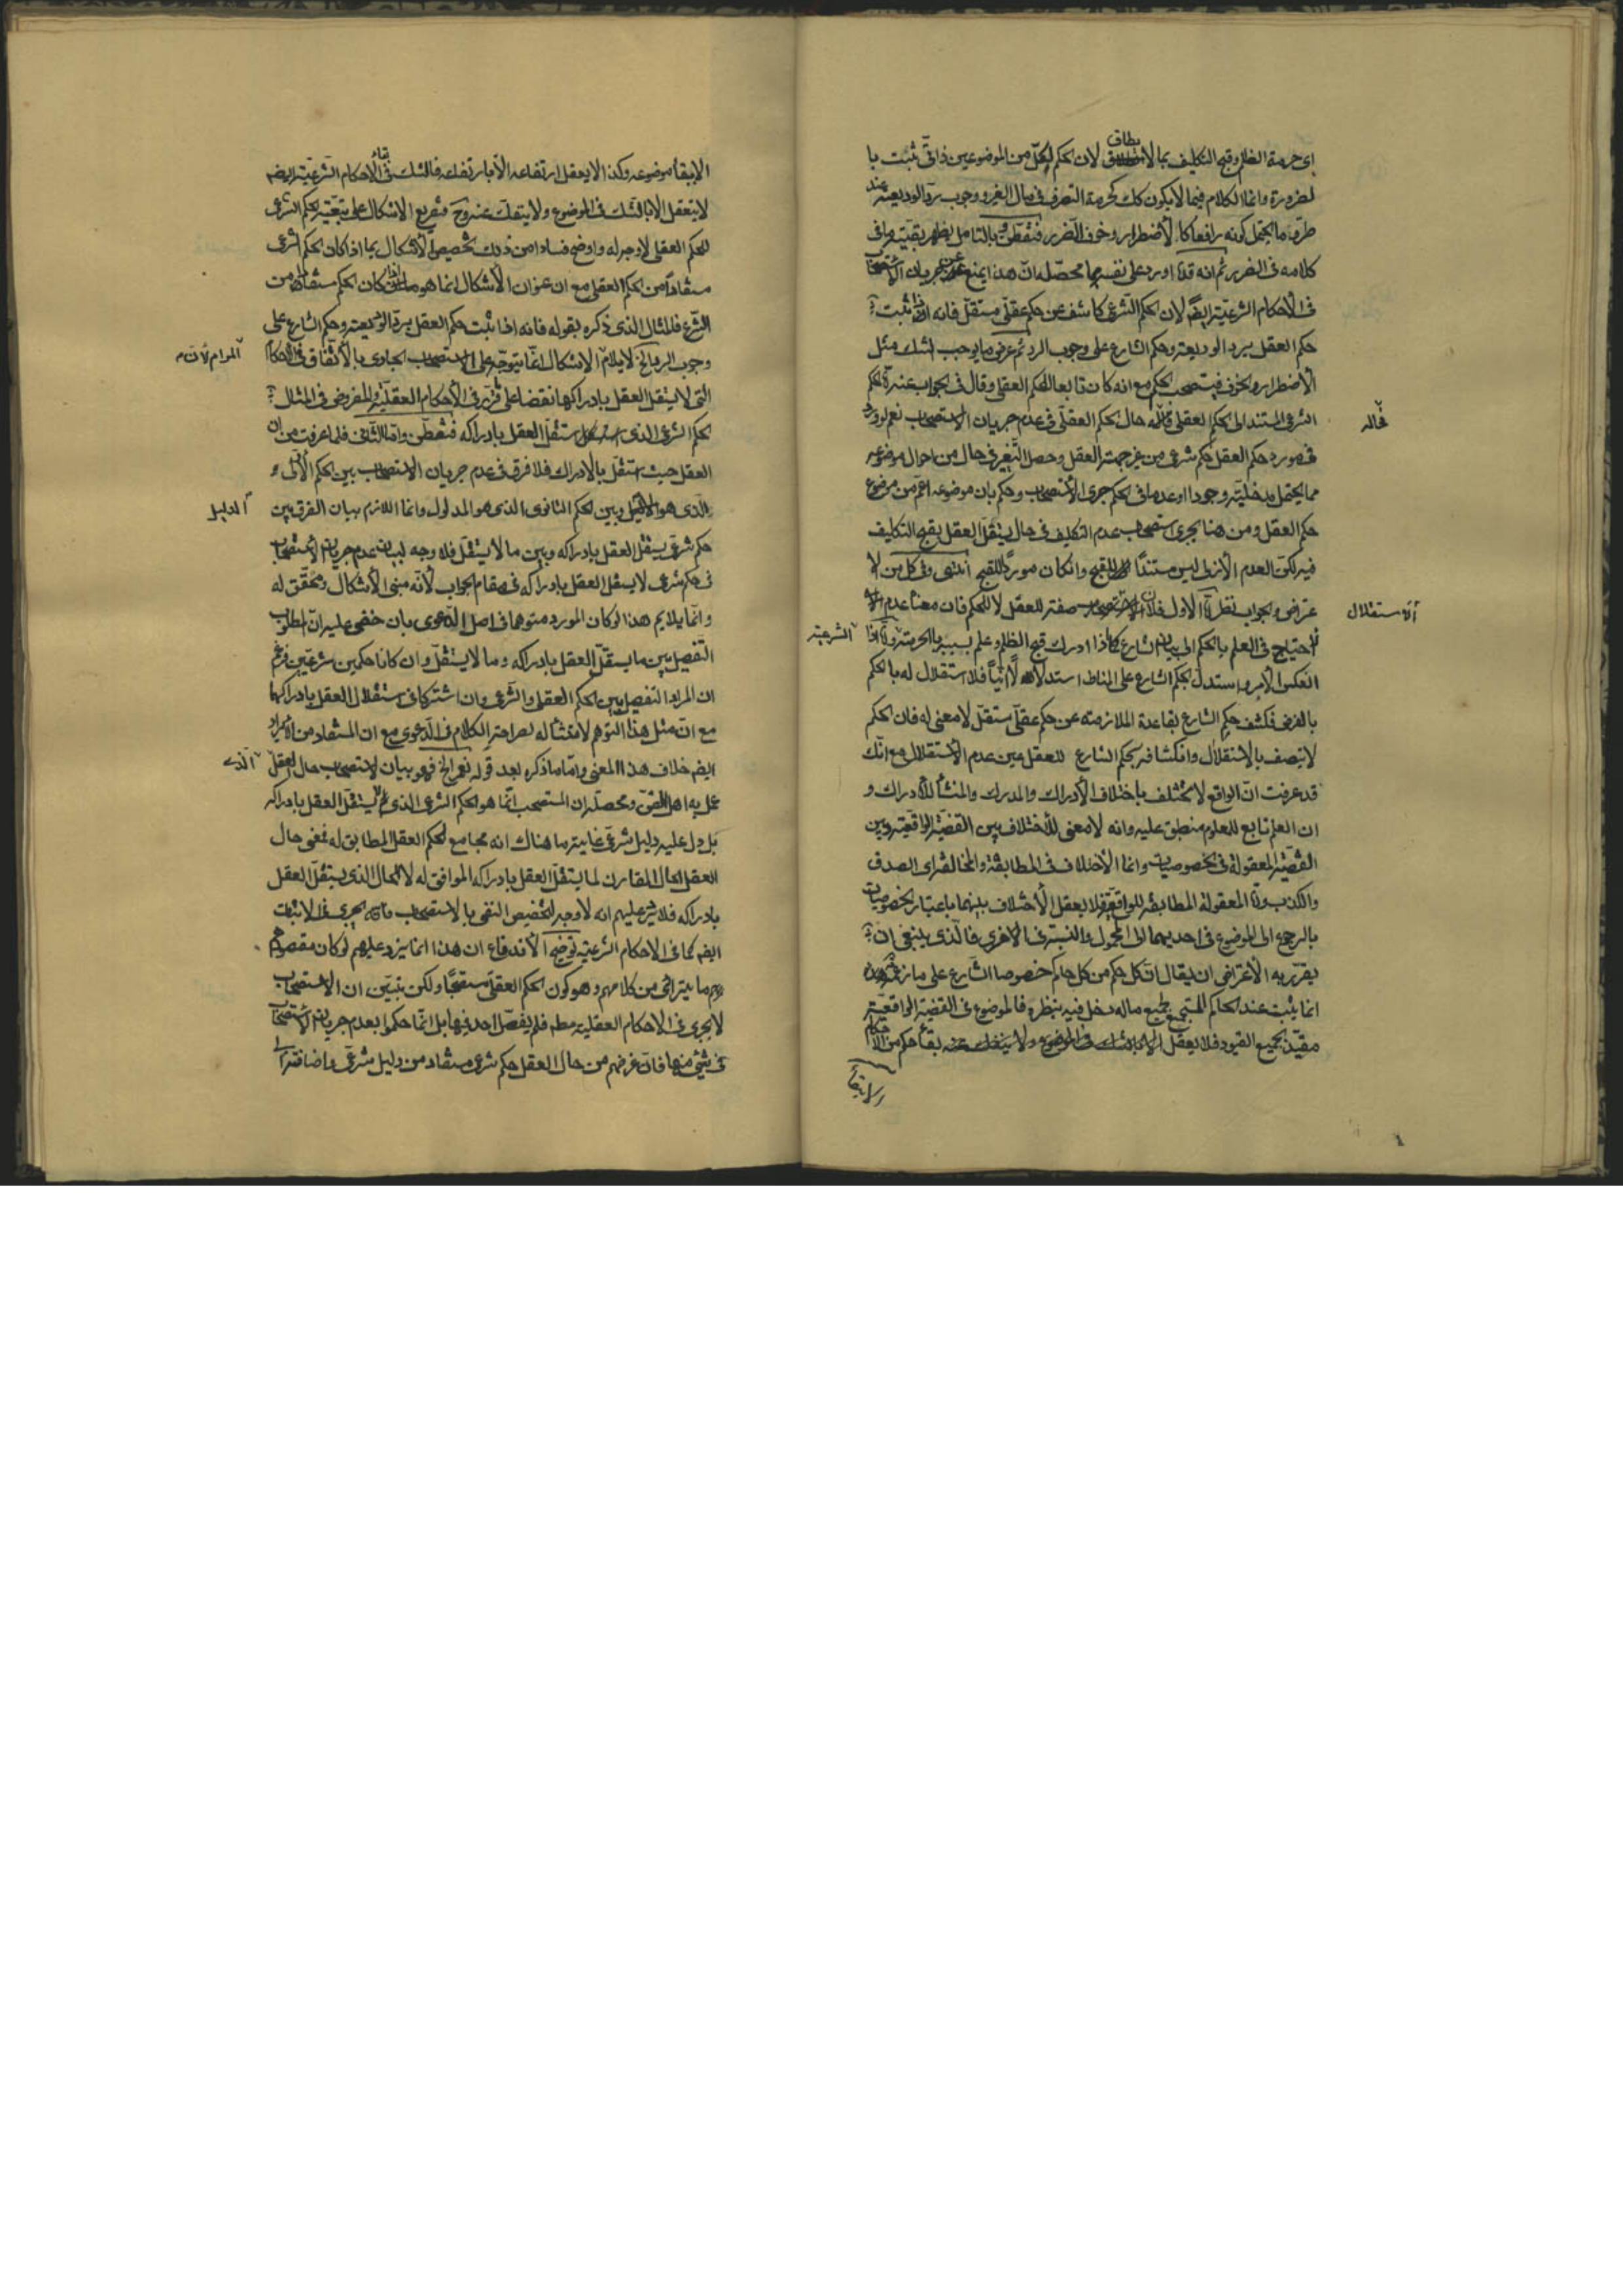 اى حرمة الظلم وقبح التكليف بما لا يطاق لان الحكم لكل من الموضوعين ذاتى ثبت با
لضرورة وانما الكلام فيما لا يكون كك كحرمة التصرف فى مال الغير ووجوب رد الوديعة عند
طرو ما يحتمل كونه رافعا كالاضطرار وخوف الضرر فتفطن وبالتامل يظهر بقية ما فى
كلامه فى الضرر ثم انه قد اورد على نفسه بما محصله ان هذا يمنع عن جريان الاستصحاب
فى الاحكام الشرعية ايضا لان الحكم الشرعى كاشف عن حكم عقلى مستقل فانه اذا ثبت
حكم العقل برد الوديعة وحكم الشارع على وجوب الرد ثم عرض ما يوجب الشك مثل
الاضطرار والخوف فيستصحب الحكم مع انه كان تابعا للحكم العقلى وقال فى الجواب عنه ان الحكم
الشرعى المستند الى الحكم العقلى فحاله حال الحكم العقلى فى عدم جريان الاستصحاب نعم لو ورد
فى مورد حكم العقل حكم شرعى من غير جهة العقل وحصل التغير فى حال من احوال موضوعه
مما يحتمل مدخليته وجودا او عدما فى الحكم جرى الاستصحاب وحكم بان موضوعه اعم من موضوع
حكم العقل ومن هنا يجرى استصحاب عدم التكليف فى حال يستقل العقل بقبح التكليف
فيه لكن العدم الازلى ليس مستندا للقبح وان كان موردا للقبح انتهى وفى كل من الا
عتراض والجواب نظر اما الاول فلان الاستقلال صفة للعقل لا للحكم فان معناه عدم الا
حتياج فى العلم بالحكم الى بيان الشارع فاذا ادرك قبح الظلم وعلم بسببه بالحرمة الشرعية واما اذا
انعكس الامر واستدل بحكم الشارع على المناط استدلالا انيا فلا استقلال له بالحكم
بالفرض فكشف حكم الشارع بقاعدة الملازمة عن حكم عقلى مستقل لا معنى له فان الحكم
لا يتصف بالاستقلال وانكشافه بحكم الشارع للعقل عين عدم الاستقلال مع انك
قد عرفت ان الواقع لا يختلف باختلاف الادراك والمدرك والمنشأ للادراك و
ان العلم تابع للمعلوم منطبق عليه وانه لا معنى للاختلاف بين القضية الواقعية وبين
القضية المعقولة فى الخصوصيات وانما الاختلاف فى المطابقة والمخالفة اى الصدق
والكذب واما المعقولة المطابقة للواقعية فلا يعقل الاختلاف بينهما باعتبار الخصوصيات
بالرجوع الى الموضوع فى احديهما الى المحمول والنسبة فى الاخرى فالذى ينبغى ان
يقرر به الاعتراض ان يقال ان كل حكم من كل حاكم خصوصا الشارع على ما زعمه هذه
انما يثبت عند الحاكم المستجمع لجميع ماله دخل فيه بنظره فالموضوع فى القضية الواقعية
مقيد بجميع القيود فلا يعقل بقاء حكم من الاحكام
الا ببقاء
الا ببقاء موضوعه وكذا لا يعقل ارتفاعه الا بارتفاعه فالشك فى بقاء الاحكام الشرعية ايضا
لا يتعقل الا بالشك فى الموضوع ولا ينفك عنه وح فتفريع الاشكال على تبعية الحكم الشرعى
للحكم العقلى لا وجه له واوضح فسادا من ذلك تخصيص الاشكال بما اذا كان الحكم الشرعى
مستفادا من الحكم العقلى مع ان عنوان الاشكال انما هو ما اذا كان الحكم مستفادا من
الشرع فالمثال الذى ذكره بقوله فانه اذا ثبت حكم العقل برد الوديعة وحكم الشارع على
وجوب الرد الخ لا يلائم المرام لان الاشكال انما يتوجه على الاستصحاب الجارى بالاتفاق فى الاحكام
التى لا يستقل العقل بادراكها نقضا على ما قرر فى الاحكام العقلية والمفروض فى المثال
الحكم الشرعى الذى استقل العقل بادراكه فتفطن واما الثانى فلما عرفت من ان
العقل حيث استقل بالادراك فلا فرق فى عدم جريان الاستصحاب بين الحكم الاولى
الذى هو الدليل وبين الحكم الثانوى الذى هو المدلول وانما اللازم بيان الفرق بين
حكم شرعى يستقل العقل بادراكه وبين ما لا يستقل فلا وجه لبيان عدم جريان الاستصحاب
فى حكم شرعى لا يستقل العقل بادراكه فى مقام الجواب لانه مبنى الاشكال ومحقق له
وانما يلايم هذا لو كان المورد متوهما فى اصل الدعوى بان خفى عليه ان المطلوب
التفصيل بين ما يستقل العقل بادراكه وما لا يستقل وان كانا حكمين شرعيين فزعم
ان المراد التفصيل بين الحكم العقلى والشرعى وان اشتركا فى استقلال العقل بادراكهما
مع ان مثل هذا التوهم لا منشأ له لصراحة الكلام فى الدعوى مع ان المستفاد من الايراد
ايضا خلاف هذا المعنى واما ما ذكره بعد قوله نعم الخ فهو بيان لاستصحاب حال العقل الذى
عمل به اهل الفن ومحصله ان المستصحب انما هو الحكم الشرعى الذى لم يستقل العقل بادراكه
بل دل عليه دليل شرعى غاية ما هناك انه مجامع لحكم العقل المطابق له فمعنى حال
العقل الحال المقارن لما يستقل العقل بادراكه الموافق له لا الحال الذى يستقل العقل
بادراكه فلا يرد عليهم انه لا وجه لتخصيص النفى بالاستصحاب فانه يجرى فى الاثبات
ايضا كما فى الاحكام الشرعية توضيح الاندفاع ان هذا انما يرد عليهم لو كان مقصودهم
ما يترائى من كلامهم وهو كون الحكم العقلى مستصحبا ولكن تبين ان الاستصحاب
لا يجرى فى الاحكام العقلية مطم فلم يفصل احد فيها بل انما حكموا بعدم جريان الاستصحاب
فى شىء منها فان غرضهم من حال العقل حكم شرعى مستفاد من دليل شرعى واضافته الى